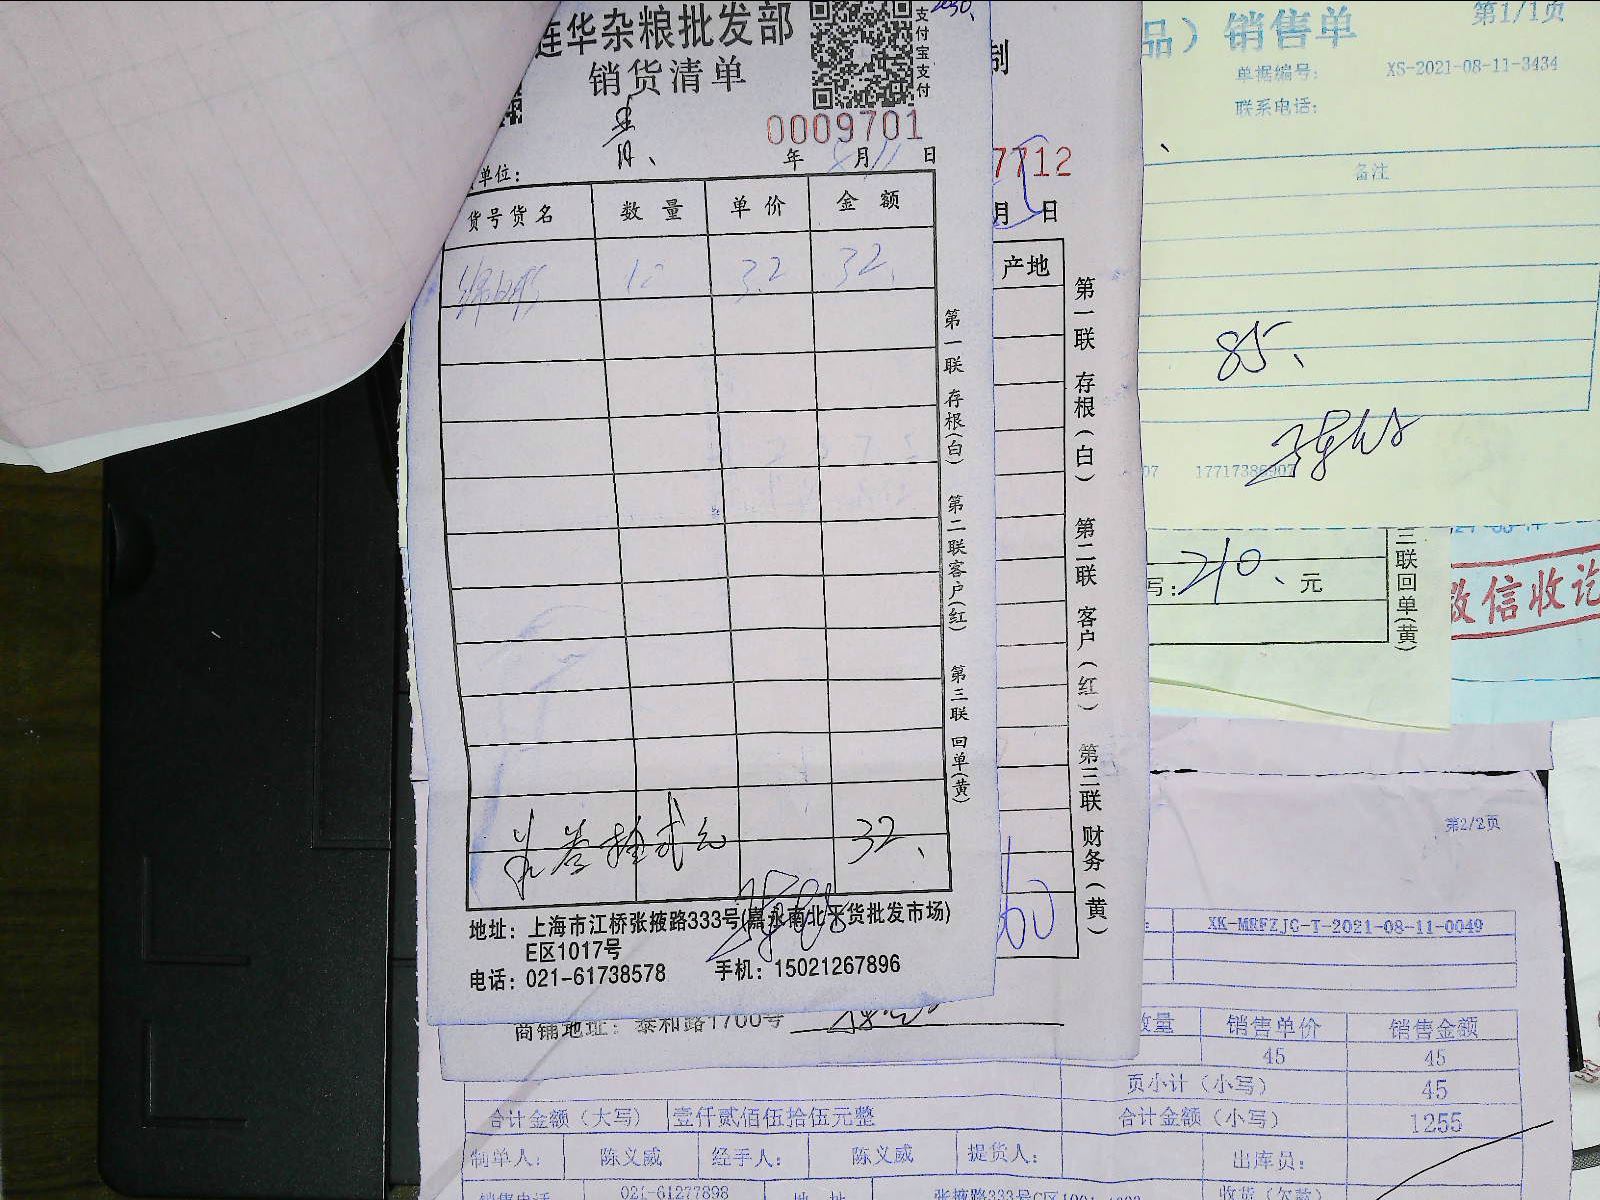 连华杂粮批发部
支付宝支付
销货清单
0009701
年 8月11日
单位:
货号货名 数量 单价 金额
10 3.2 32.
32.
第一联 存根(白) 第二联客户(红) 第三联 回单(黄)
地址: 上海市江桥张掖路333号(嘉永南北干货批发市场)
E区1017号
电话: 021-61738578 手机: 15021267896
制
7712
月 日
产地
第一联 存根(白) 第二联 客户(红) 第三联 财务(黄)
60
商铺地址: 泰和路1700号
品) 销售单
第1/1页
单据编号: XS-2021-08-11-3434
联系电话:
备注
85.
07 17717386907
写: 210. 元
三联回单(黄)
微信收讫
第2/2页
XK-MRFZJG-T-2021-08-11-0049
数量 销售单价 销售金额
45 45
页小计(小写) 45
合计金额(大写) 壹仟贰佰伍拾伍元整 合计金额(小写) 1255
制单人: 陈义威 经手人: 陈义威 提货人: 出库员:
销售电话 021-61277898 地 址